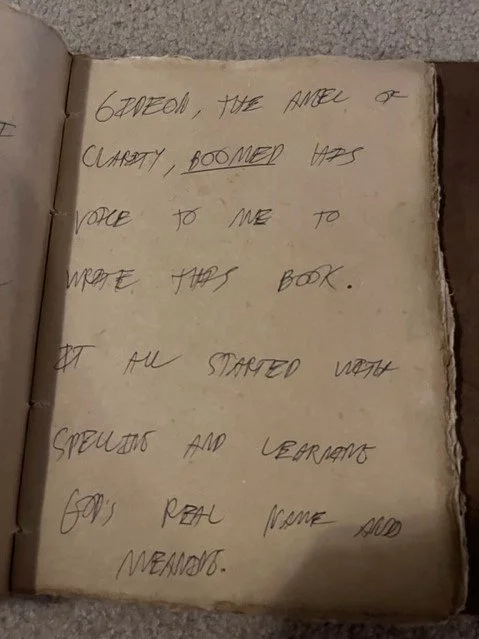 GIDEON, THE ANGEL OF
CLARITY, BOOMED HIS
VOICE TO ME TO
WRITE THIS BOOK.
IT ALL STARTED WITH
SPELLING AND LEARNING
GOD'S REAL NAME AND
MEANING.